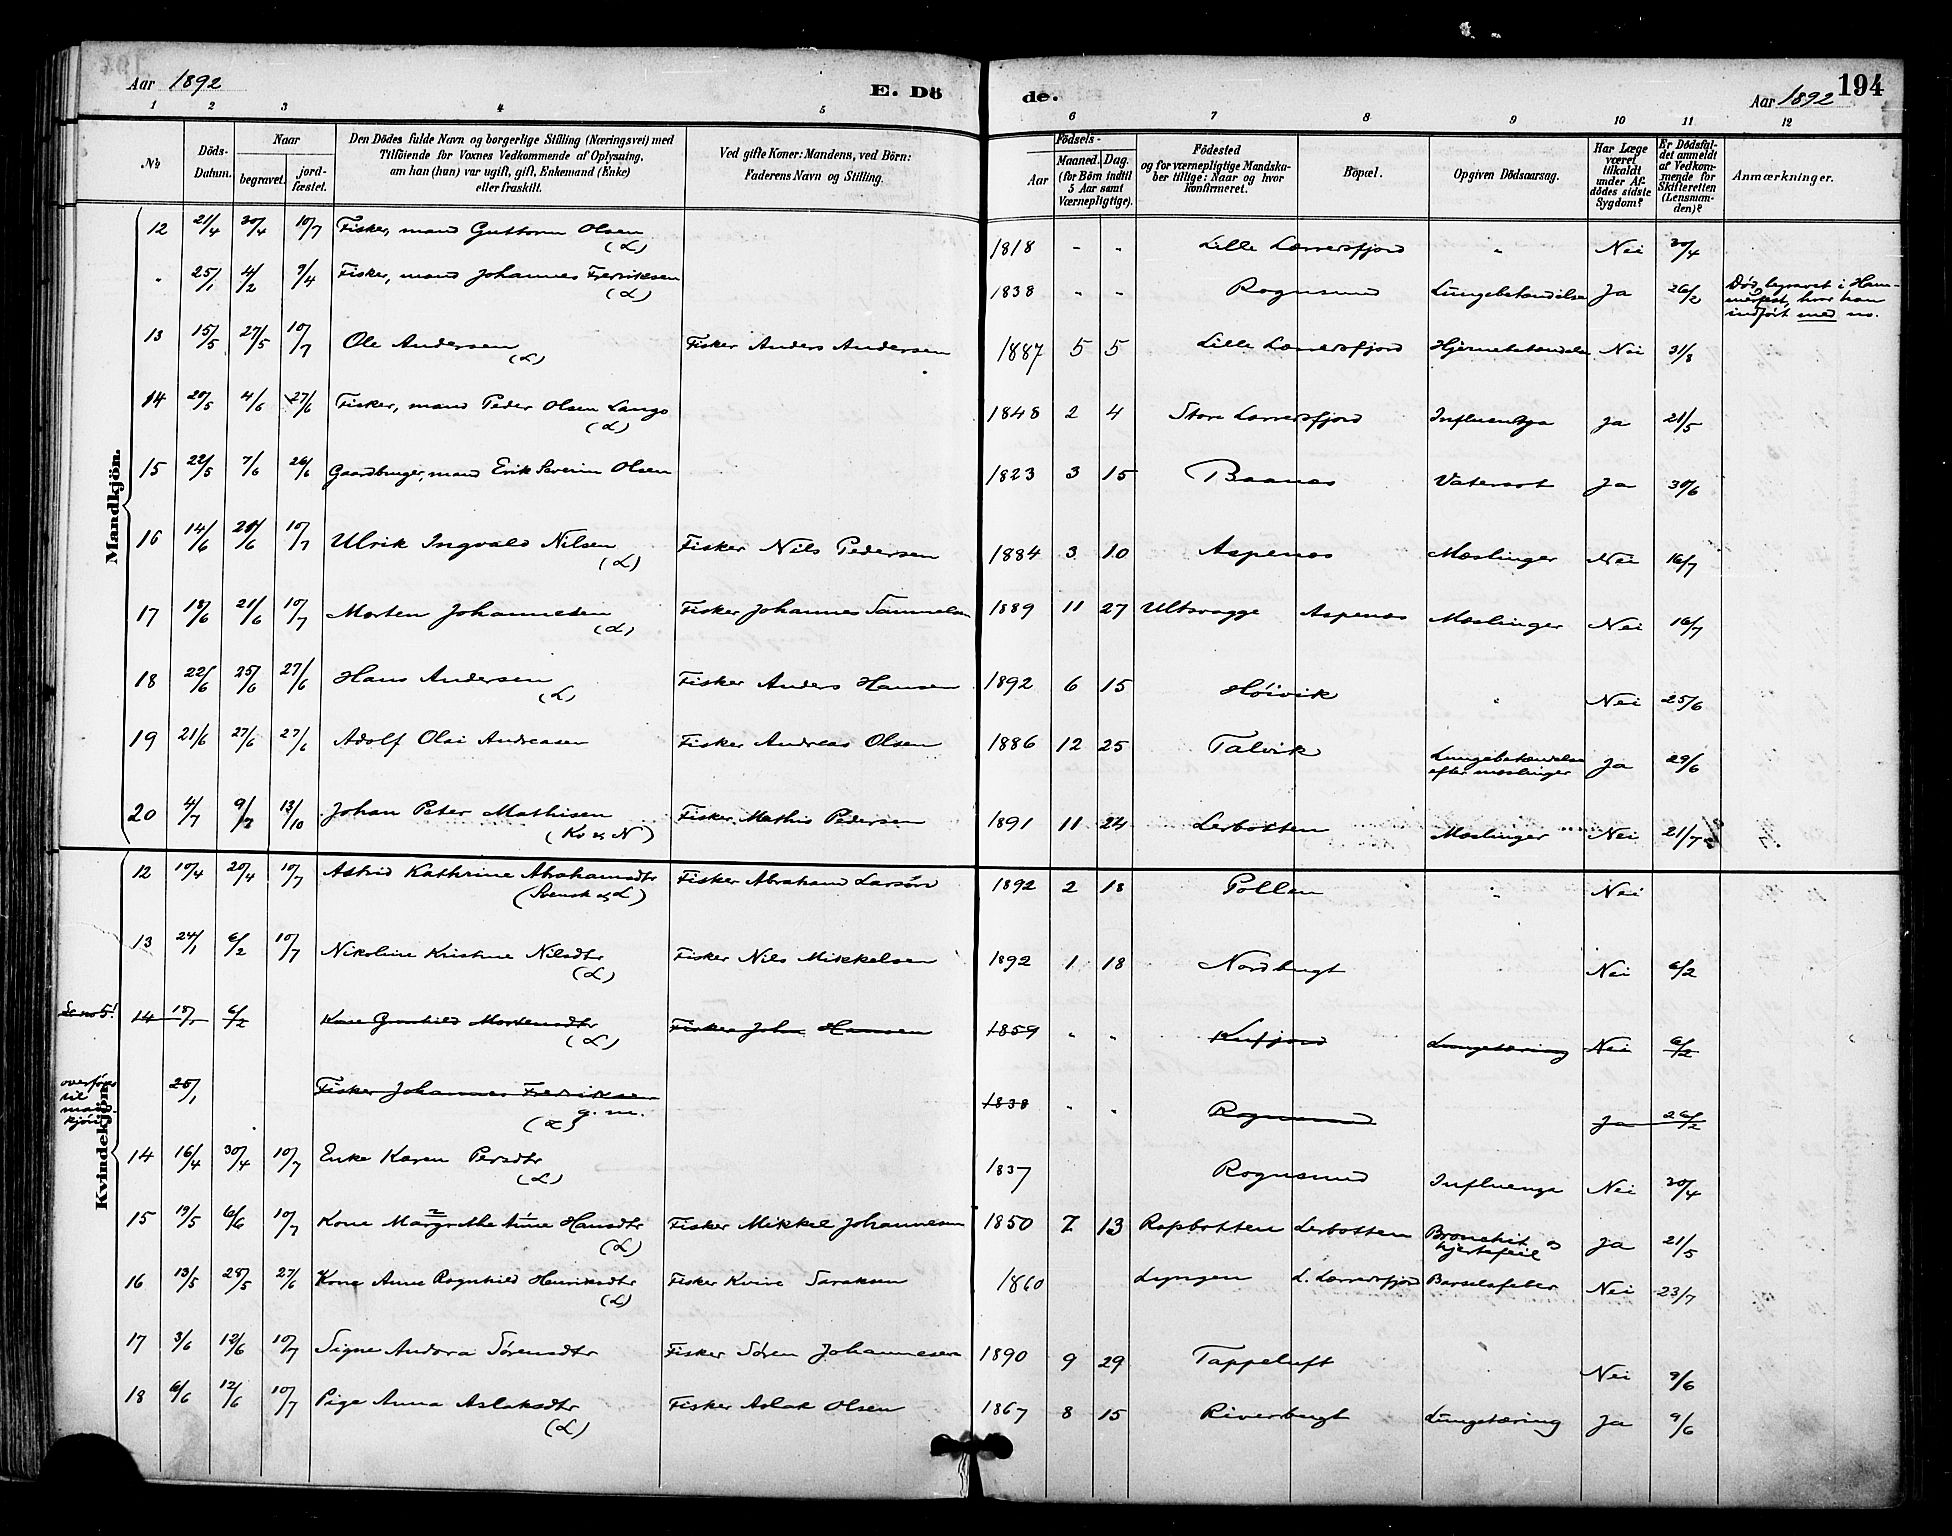 Aar 1892
E. Dö
de.
Aar 1892
194
1 2 3 4 5 6 7 8 9 10 11 12
No
Döds-Datum.
Naar
begravet.
jord-fæstet.
Den Dödes fulde Navn og borgerlige Stilling (Næringsvei) med
Tilföiende for Voxnes Vedkommende af Oplysning,
om han (hun) var ugift, gift, Enkemand (Enke)
eller fraskilt.
Ved gifte Koner: Mandens, ved Börn:
Faderens Navn og Stilling.
Födsels-
Aar
Maaned. Dag.
(for Börn indtil
5 Aar samt
Værnepligtige).
Födested
og for værnepligtige Mandska-
ber tillige: Naar og hvor
konfirmeret.
Bopæl.
Opgiven Dödsaarsag.
Har Læge
været
tilkaldt
under Af-
dödes sidste
Sygdom?
Er Dödsfal-
det anmeldt
af Vedkom-
mende for
Skifteretten
(Lensman-
den)?
Anmærkninger.
Mandkjön.
12 21/4 30/4 10/7 Fisker, mand Guttorm Olsen (L) 1818 " " Lille Lerresfjord " Nei 30/4
" 25/1 4/2 9/4 Fisker, mand Johannes Fredriksen (L) 1838 " " Rognsund Lungebetændelse Ja 26/2 Död, begravet i Ham-
merfest, hvor han
indført med no.
13 15/5 27/5 10/7 Ole Andersen (L) Fisker Anders Andersen 1887 5 5 Lille Lerresfjord Hjernebetændelse Nei 31/8
14 20/5 4/6 27/6 Fisker, mand Peder Olsen Lango (L) 1848 2 4 Store Lerresfjord Influentza Ja 21/5
15 22/5 7/6 26/6 Gaardbruger, mand Erik Severin Olsen 1823 3 15 Baanes Vatersot Ja 30/6
16 14/6 20/6 10/7 Ulrik Ingvald Nilsen (L) Fisker Nils Pedersen 1884 3 10 Aspenes Mæslinger Nei 16/7
17 18/6 21/6 10/7 Morten Johannesen (L) Fisker Johannes Sammelsen 1889 11 27 Ultsvagge Aspenes Mæslinger Nei 16/7
18 22/6 25/6 27/6 Hans Andersen (L) Fisker Anders Hansen 1892 6 15 Høivik " Nei 25/6
19 21/6 27/6 27/6 Adolf Olai Andreasen Fisker Andreas Olsen 1886 12 25 Talvik Lungebetændelse
efter mæslinger Ja 29/6
20 4/7 9/7 13/10 Johan Peter Mathisen (Kv og N) Fisker Mathis Pedersen 1891 11 24 Lerbotten Mæslinger Nei 21/7
Kvindekjön.
12 10/4 20/4 10/7 Astrid Kathrine Abrahamsdtr (Svensk og L) Fisker Abraham Larsön 1892 2 18 Pollen " Nei
13 24/1 6/2 10/7 Nikoline Kristine Nilsdtr (L) Fisker Nils Mikkelsen 1892 1 18 Nordbugt Nei 6/2
Se no 5! 14 18/1 6/2 Kone Gunhild Mortensdtr (L) Fisker John Hansen 1859 " " Kufjord Lungetæring Nei 6/2
overføres
til
mand-
kjøn 25/1 Fisker Johannes Fredriksen g. m. (L) 1838 " " Rognsund Ja 26/2
14 16/4 30/4 10/7 Enke Karen Persdtr (L) 1837 Rognsund Influenza Nei 30/4
15 19/5 6/6 10/7 Kone Margrethe Aine Hansdtr (L) Fisker Mikkel Johannesen 1850 7 13 Rapbotten Lerbotten Bronchit og
hjertefeil Ja 21/5
16 13/5 28/5 27/6 Kone Anne Ragnhild Henriksdtr (L) Fisker Kvive Saraksen 1860 Lyngen L. Lerresfjord Barselsfeber Nei 23/7
17 3/6 12/6 10/7 Signe Andora Sörensdtr Fisker Sören Johannesen 1890 9 29 Tappeluft Nei 9/6
18 6/6 12/6 10/7 Pige Anna Aslaksdtr (L) Fisker Aslak Olsen 1867 8 15 Riverbugt Lungetæring Ja 9/6